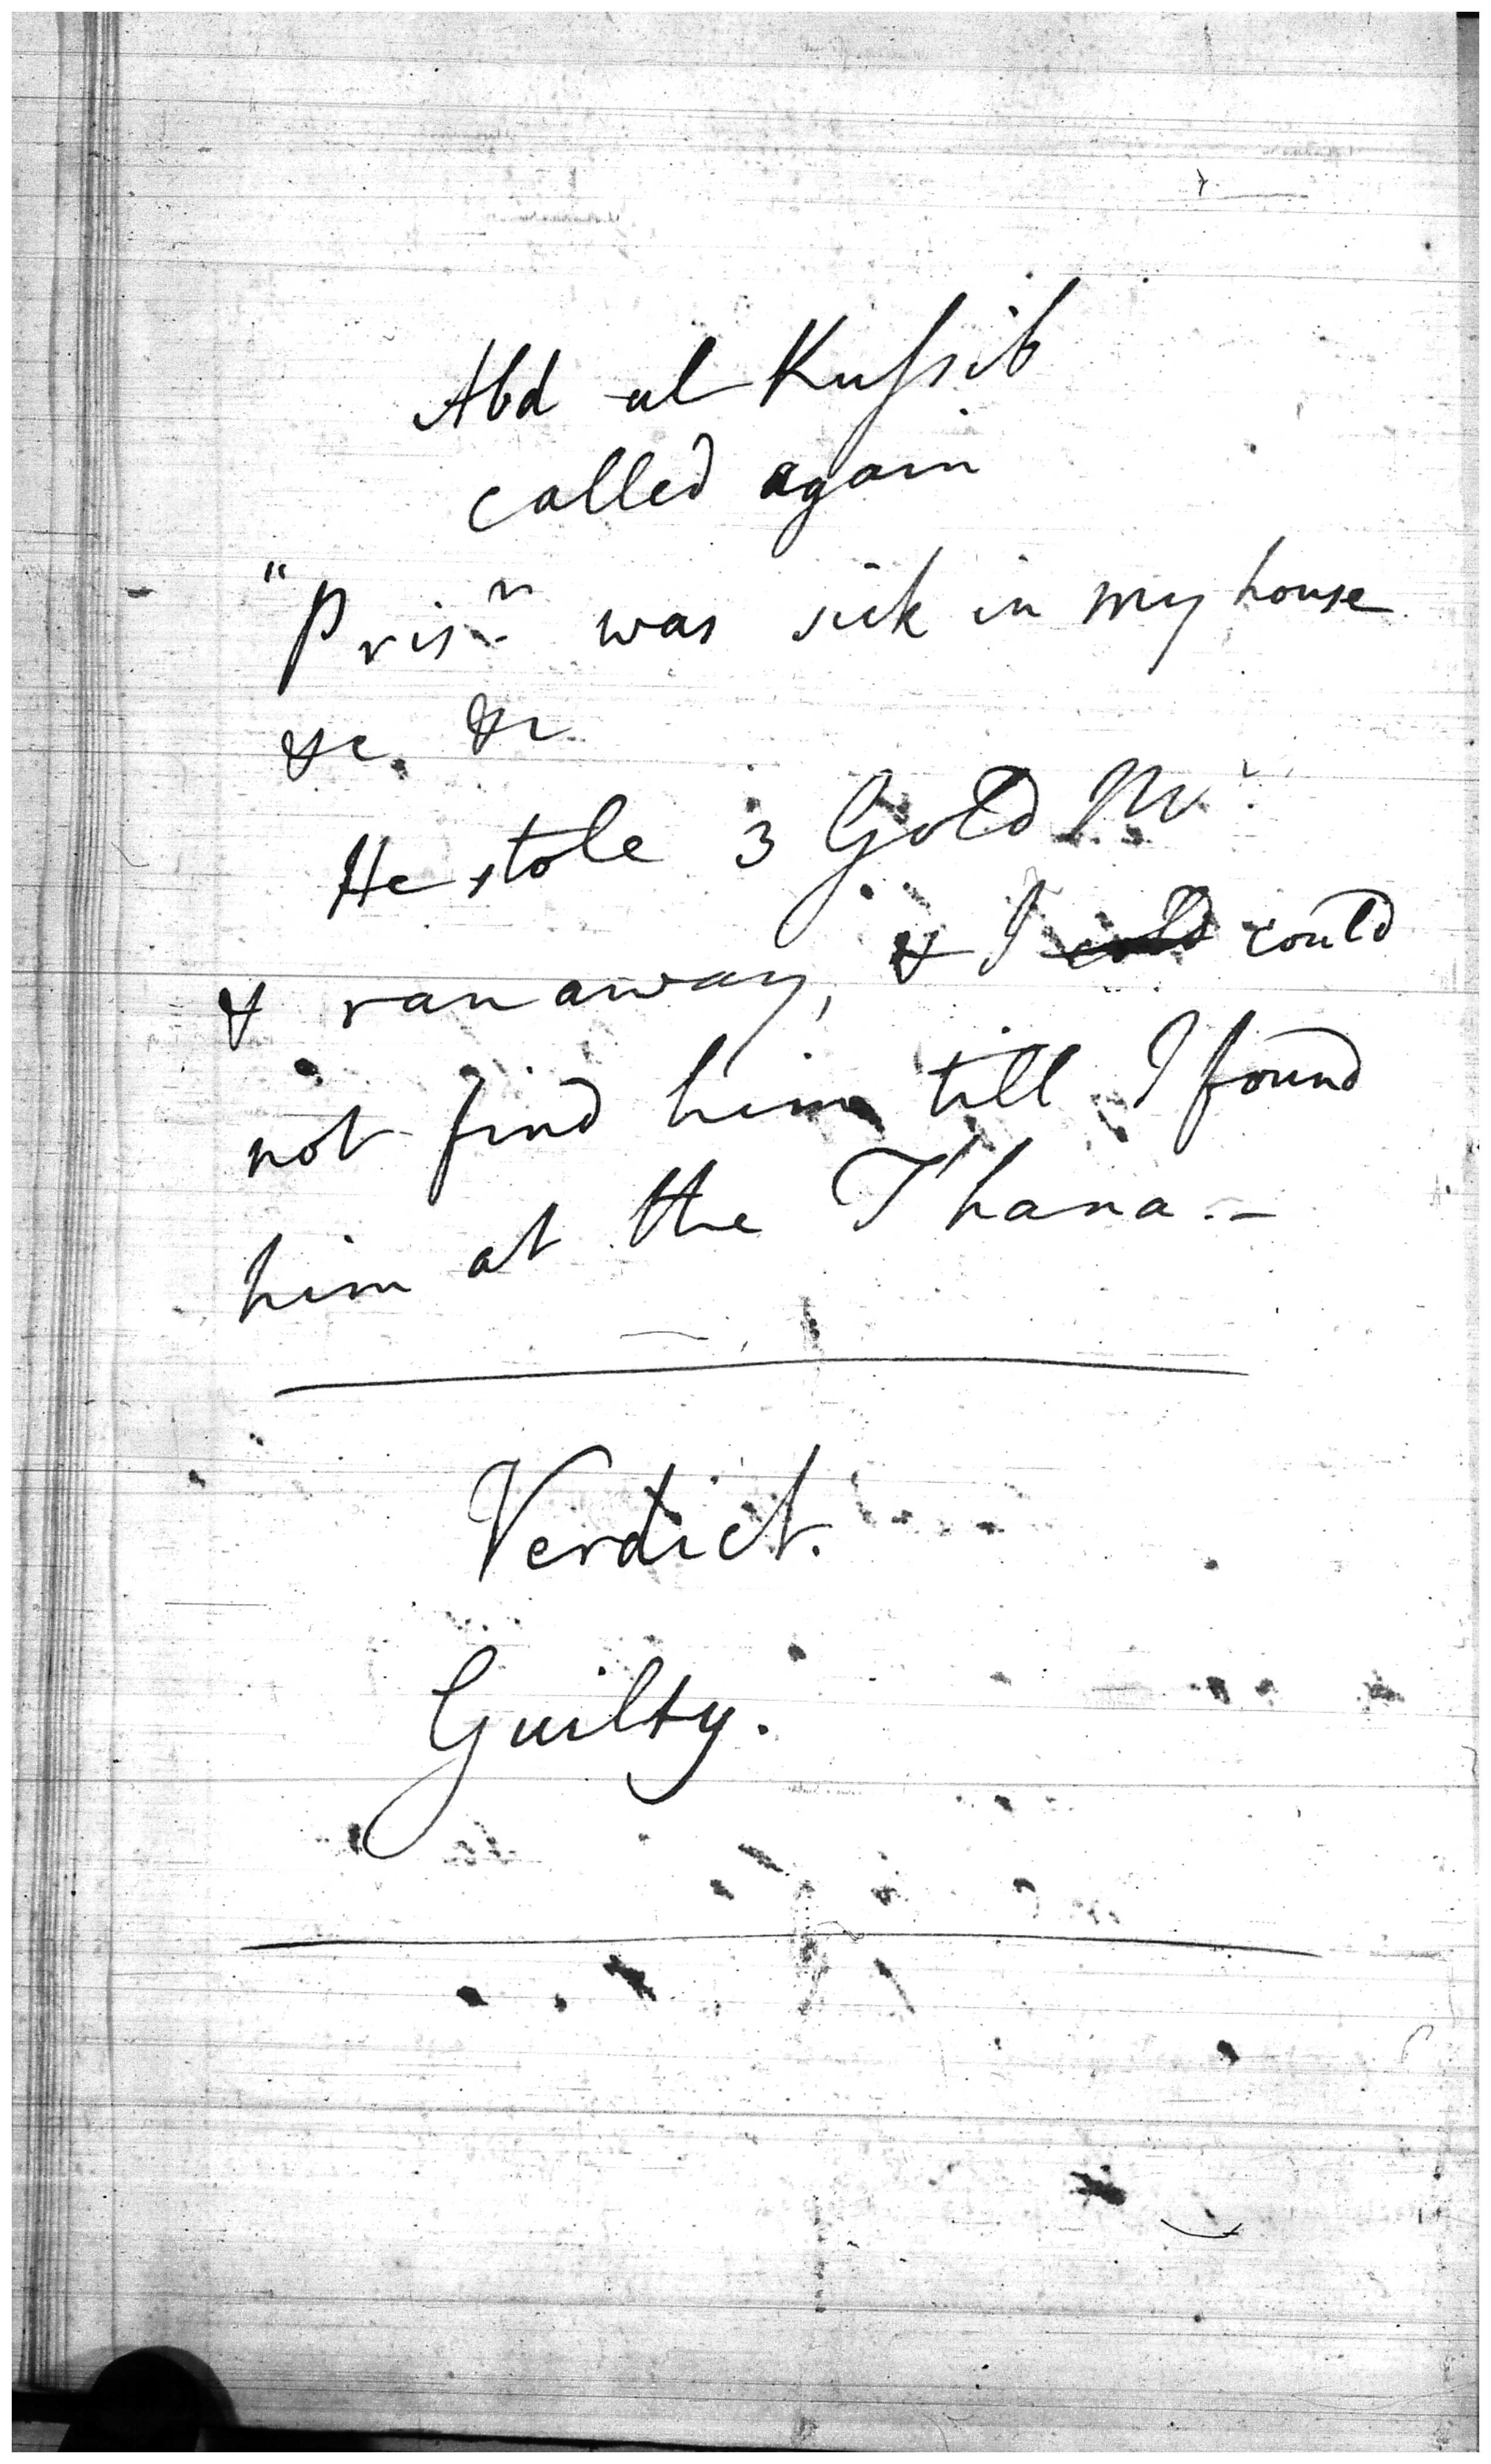 Abd ul Kussib
called again
"Prisn was sick in my house
&c. &c
He stole 3 Gold Mr
& ran away, & I could
not find him till I found
him at the Thana.-
Verdict.
Guilty.